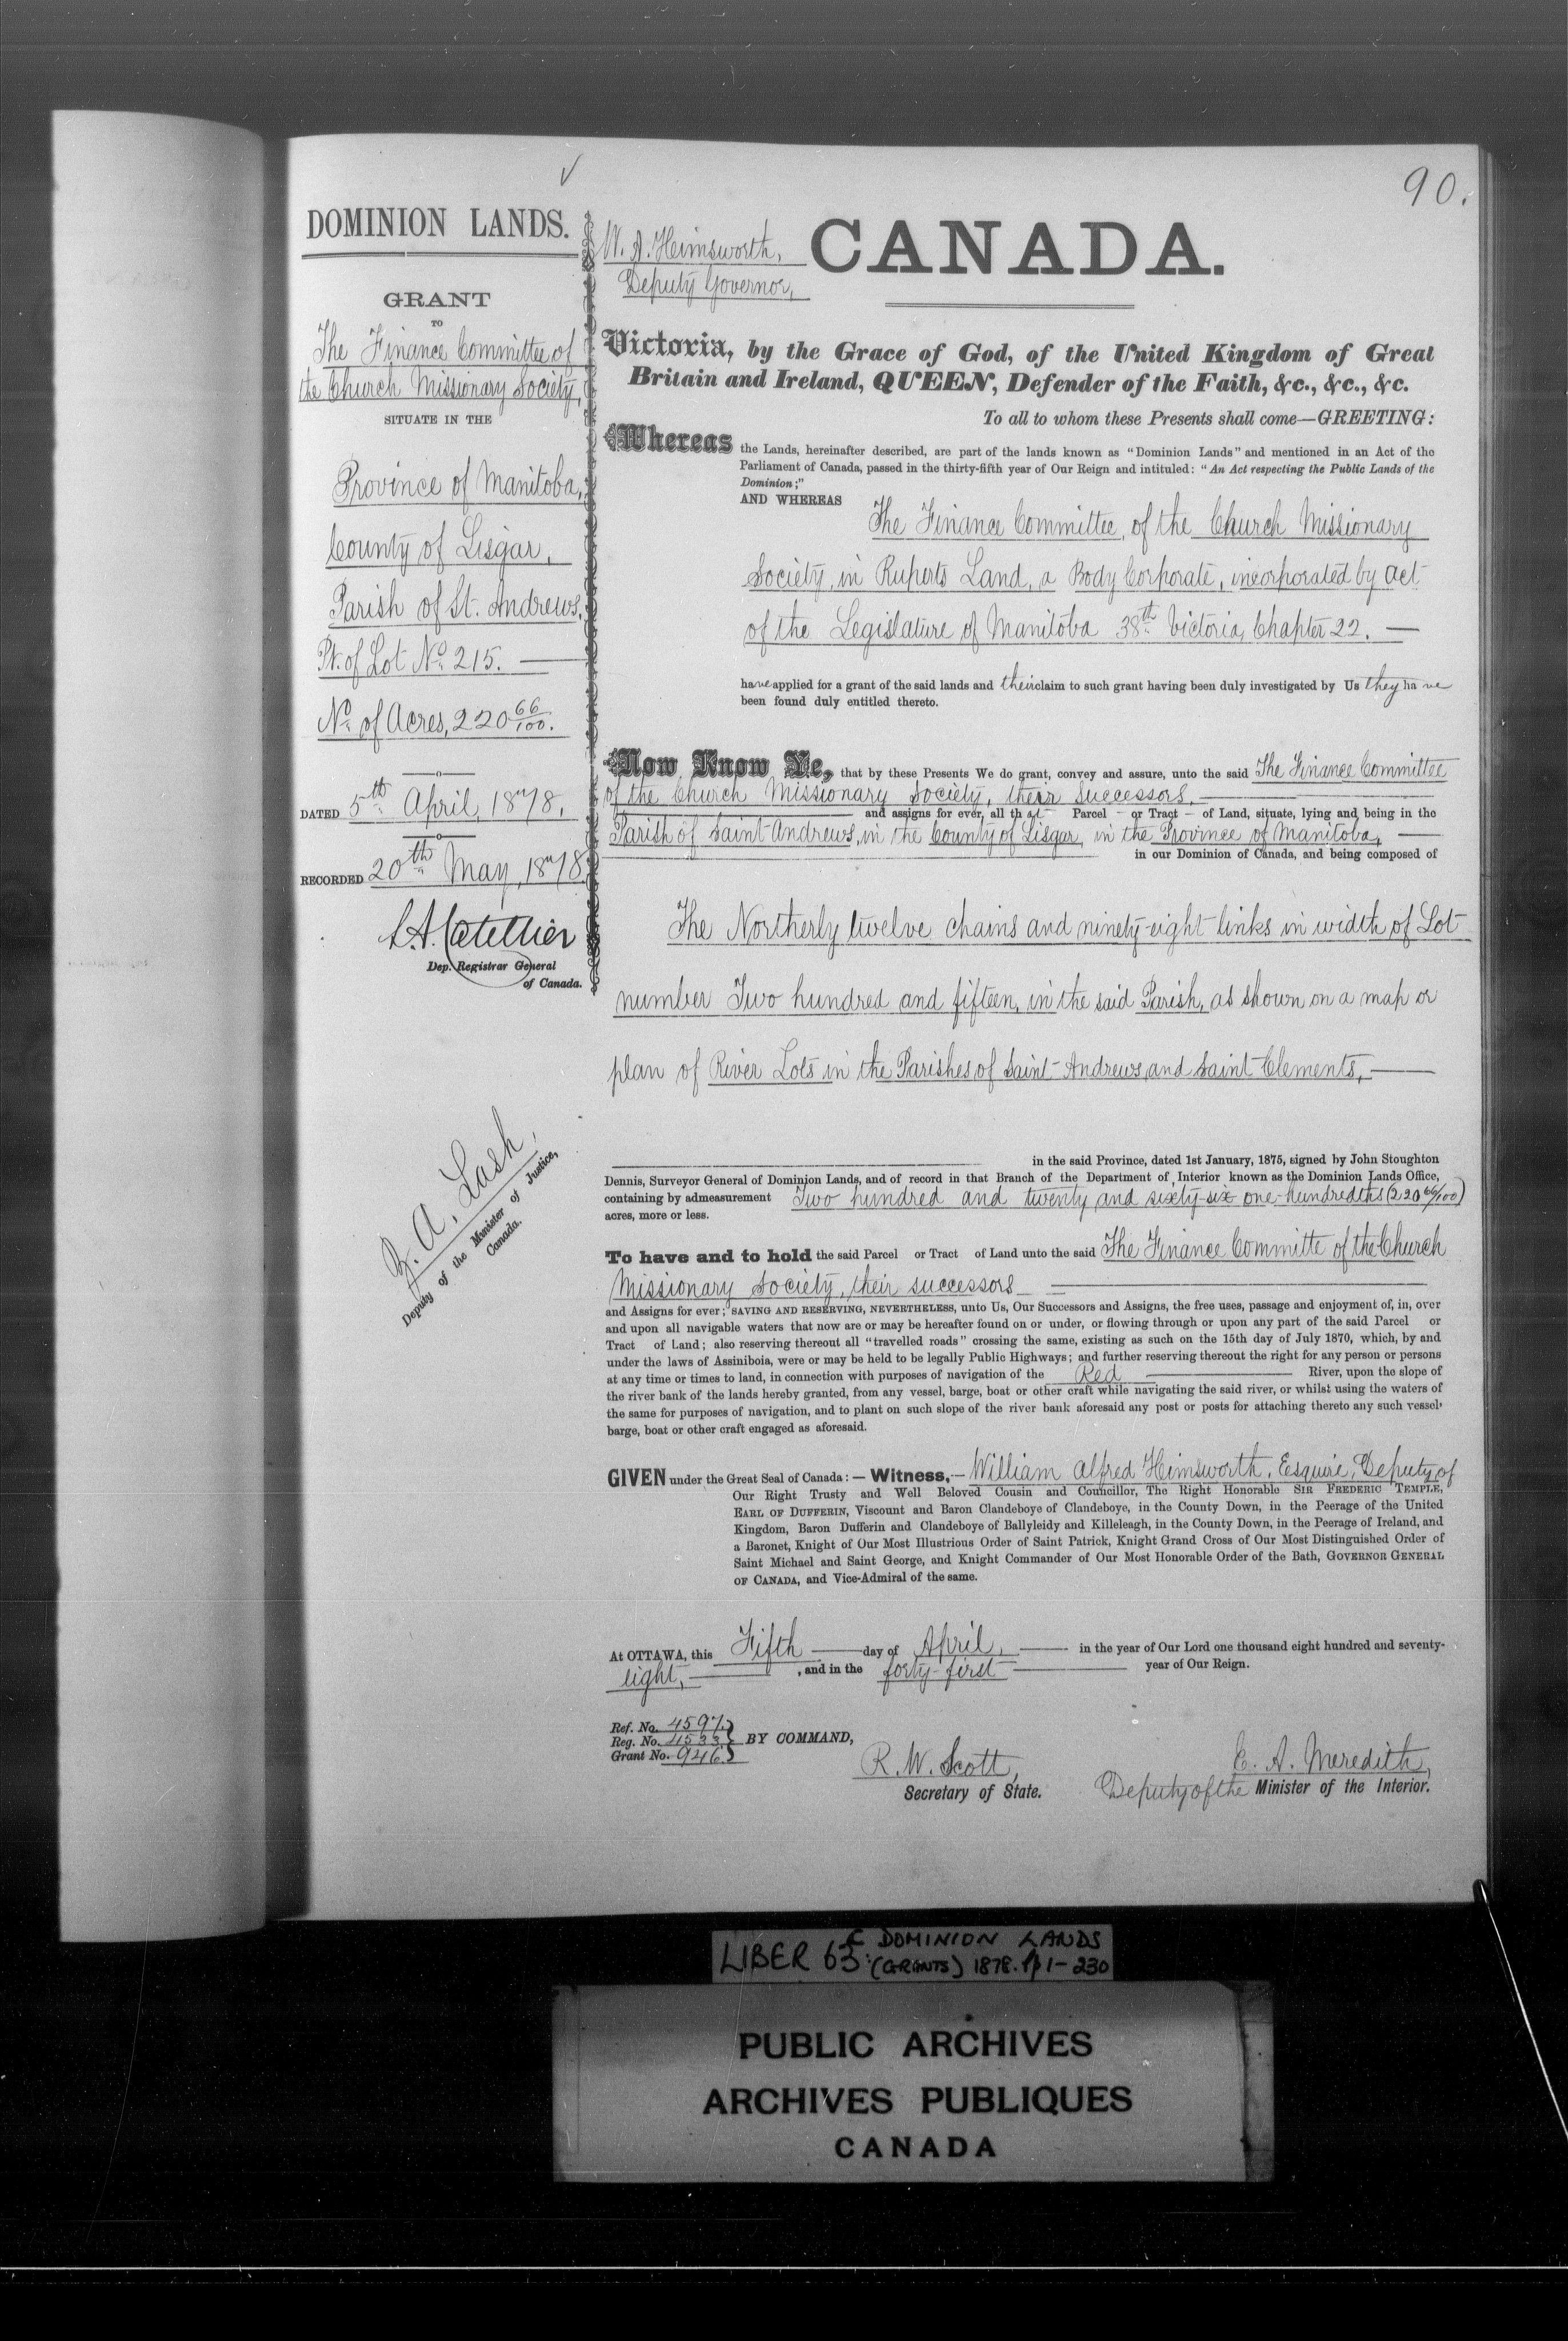 90.
DOMINION LANDS.
GRANT
TO
The Finance Committee of
the Church Missionary Society,
SITUATE IN THE
Province of Manitoba,
County of Lisgar,
Parish of St. Andrews,
Pt. of Lot No. 215. —
No. of Acres, 220 66/100.
DATED 5th April, 1878,
RECORDED 20th May, 1878
L.A. Catellier
Dep. Registrar General
of Canada.
Z. A. Lash,
Deputy of the Minister of Justice,
Canada.
W. A. Himsworth,
Deputy Governor,
CANADA.
Victoria, by the Grace of God, of the United Kingdom of Great
Britain and Ireland, QUEEN, Defender of the Faith, &c., &c., &c.
To all to whom these Presents shall come—GREETING:
Whereas the Lands, hereinafter described, are part of the lands known as "Dominion Lands" and mentioned in an Act of the
Parliament of Canada, passed in the thirty-fifth year of Our Reign and intituled: "An Act respecting the Public Lands of the
Dominion;"
AND WHEREAS
The Finance Committee, of the Church Missionary
Society, in Ruperts Land, a Body Corporate, incorporated by act
of the Legislature of Manitoba 38th Victoria, Chapter 22. —
have applied for a grant of the said lands and their claim to such grant having been duly investigated by Us they ha ve
been found duly entitled thereto.
Now Know Ye, that by these Presents We do grant, convey and assure, unto the said The Finance Committee
of the Church Missionary Society, their successors,
and assigns for ever, all th at Parcel – or Tract – of Land, situate, lying and being in the
Parish of Saint Andrews, in the County of Lisgar, in the Province of Manitoba, —
in our Dominion of Canada, and being composed of
The Northerly twelve chains and ninety-eight links in width of Lot
number Two hundred and fifteen, in the said Parish, as shown on a map or
plan of River Lots in the Parishes of Saint Andrews, and Saint Clements, —
in the said Province, dated 1st January, 1875, signed by John Stoughton
Dennis, Surveyor General of Dominion Lands, and of record in that Branch of the Department of Interior known as the Dominion Lands Office,
containing by admeasurement Two hundred and twenty and sixty-six one-hundredths (220 66/100)
acres, more or less.
To have and to hold the said Parcel or Tract of Land unto the said The Finance Committe of the Church
Missionary Society, their successors —
and Assigns for ever; SAVING AND RESERVING, NEVERTHELESS, unto Us, Our Successors and Assigns, the free uses, passage and enjoyment of, in, over
and upon all navigable waters that now are or may be hereafter found on or under, or flowing through or upon any part of the said Parcel or
Tract of Land; also reserving thereout all "travelled roads" crossing the same, existing as such on the 15th day of July 1870, which, by and
under the laws of Assiniboia, were or may be held to be legally Public Highways; and further reserving thereout the right for any person or persons
at any time or times to land, in connection with purposes of navigation of the Red — River, upon the slope of
the river bank of the lands hereby granted, from any vessel, barge, boat or other craft while navigating the said river, or whilst using the waters of
the same for purposes of navigation, and to plant on such slope of the river bank aforesaid any post or posts for attaching thereto any such vessel,
barge, boat or other craft engaged as aforesaid.
GIVEN under the Great Seal of Canada: — Witness,— William Alfred Himsworth, Esquire, Deputy of
Our Right Trusty and Well Beloved Cousin and Councillor, The Right Honorable SIR FREDERIC TEMPLE,
EARL OF DUFFERIN, Viscount and Baron Clandeboye of Clandeboye, in the County Down, in the Peerage of the United
Kingdom, Baron Dufferin and Clandeboye of Ballyleidy and Killeleagh, in the County Down, in the Peerage of Ireland, and
a Baronet, Knight of Our Most Illustrious Order of Saint Patrick, Knight Grand Cross of Our Most Distinguished Order of
Saint Michael and Saint George, and Knight Commander of Our Most Honorable Order of the Bath, GOVERNOR GENERAL
OF CANADA, and Vice-Admiral of the same.
At OTTAWA, this Fifth — day of April, — in the year of Our Lord one thousand eight hundred and seventy-
eight, — , and in the forty-first — year of Our Reign.
Ref. No. 4597
Reg. No. 4533 BY COMMAND,
Grant No. 946
R. W. Scott,
Secretary of State.
E. A. Meredith,
Deputy of the Minister of the Interior.
LIBER 63: C DOMINION LANDS
(GRANTS) 1878. pp 1-230
PUBLIC ARCHIVES
ARCHIVES PUBLIQUES
CANADA